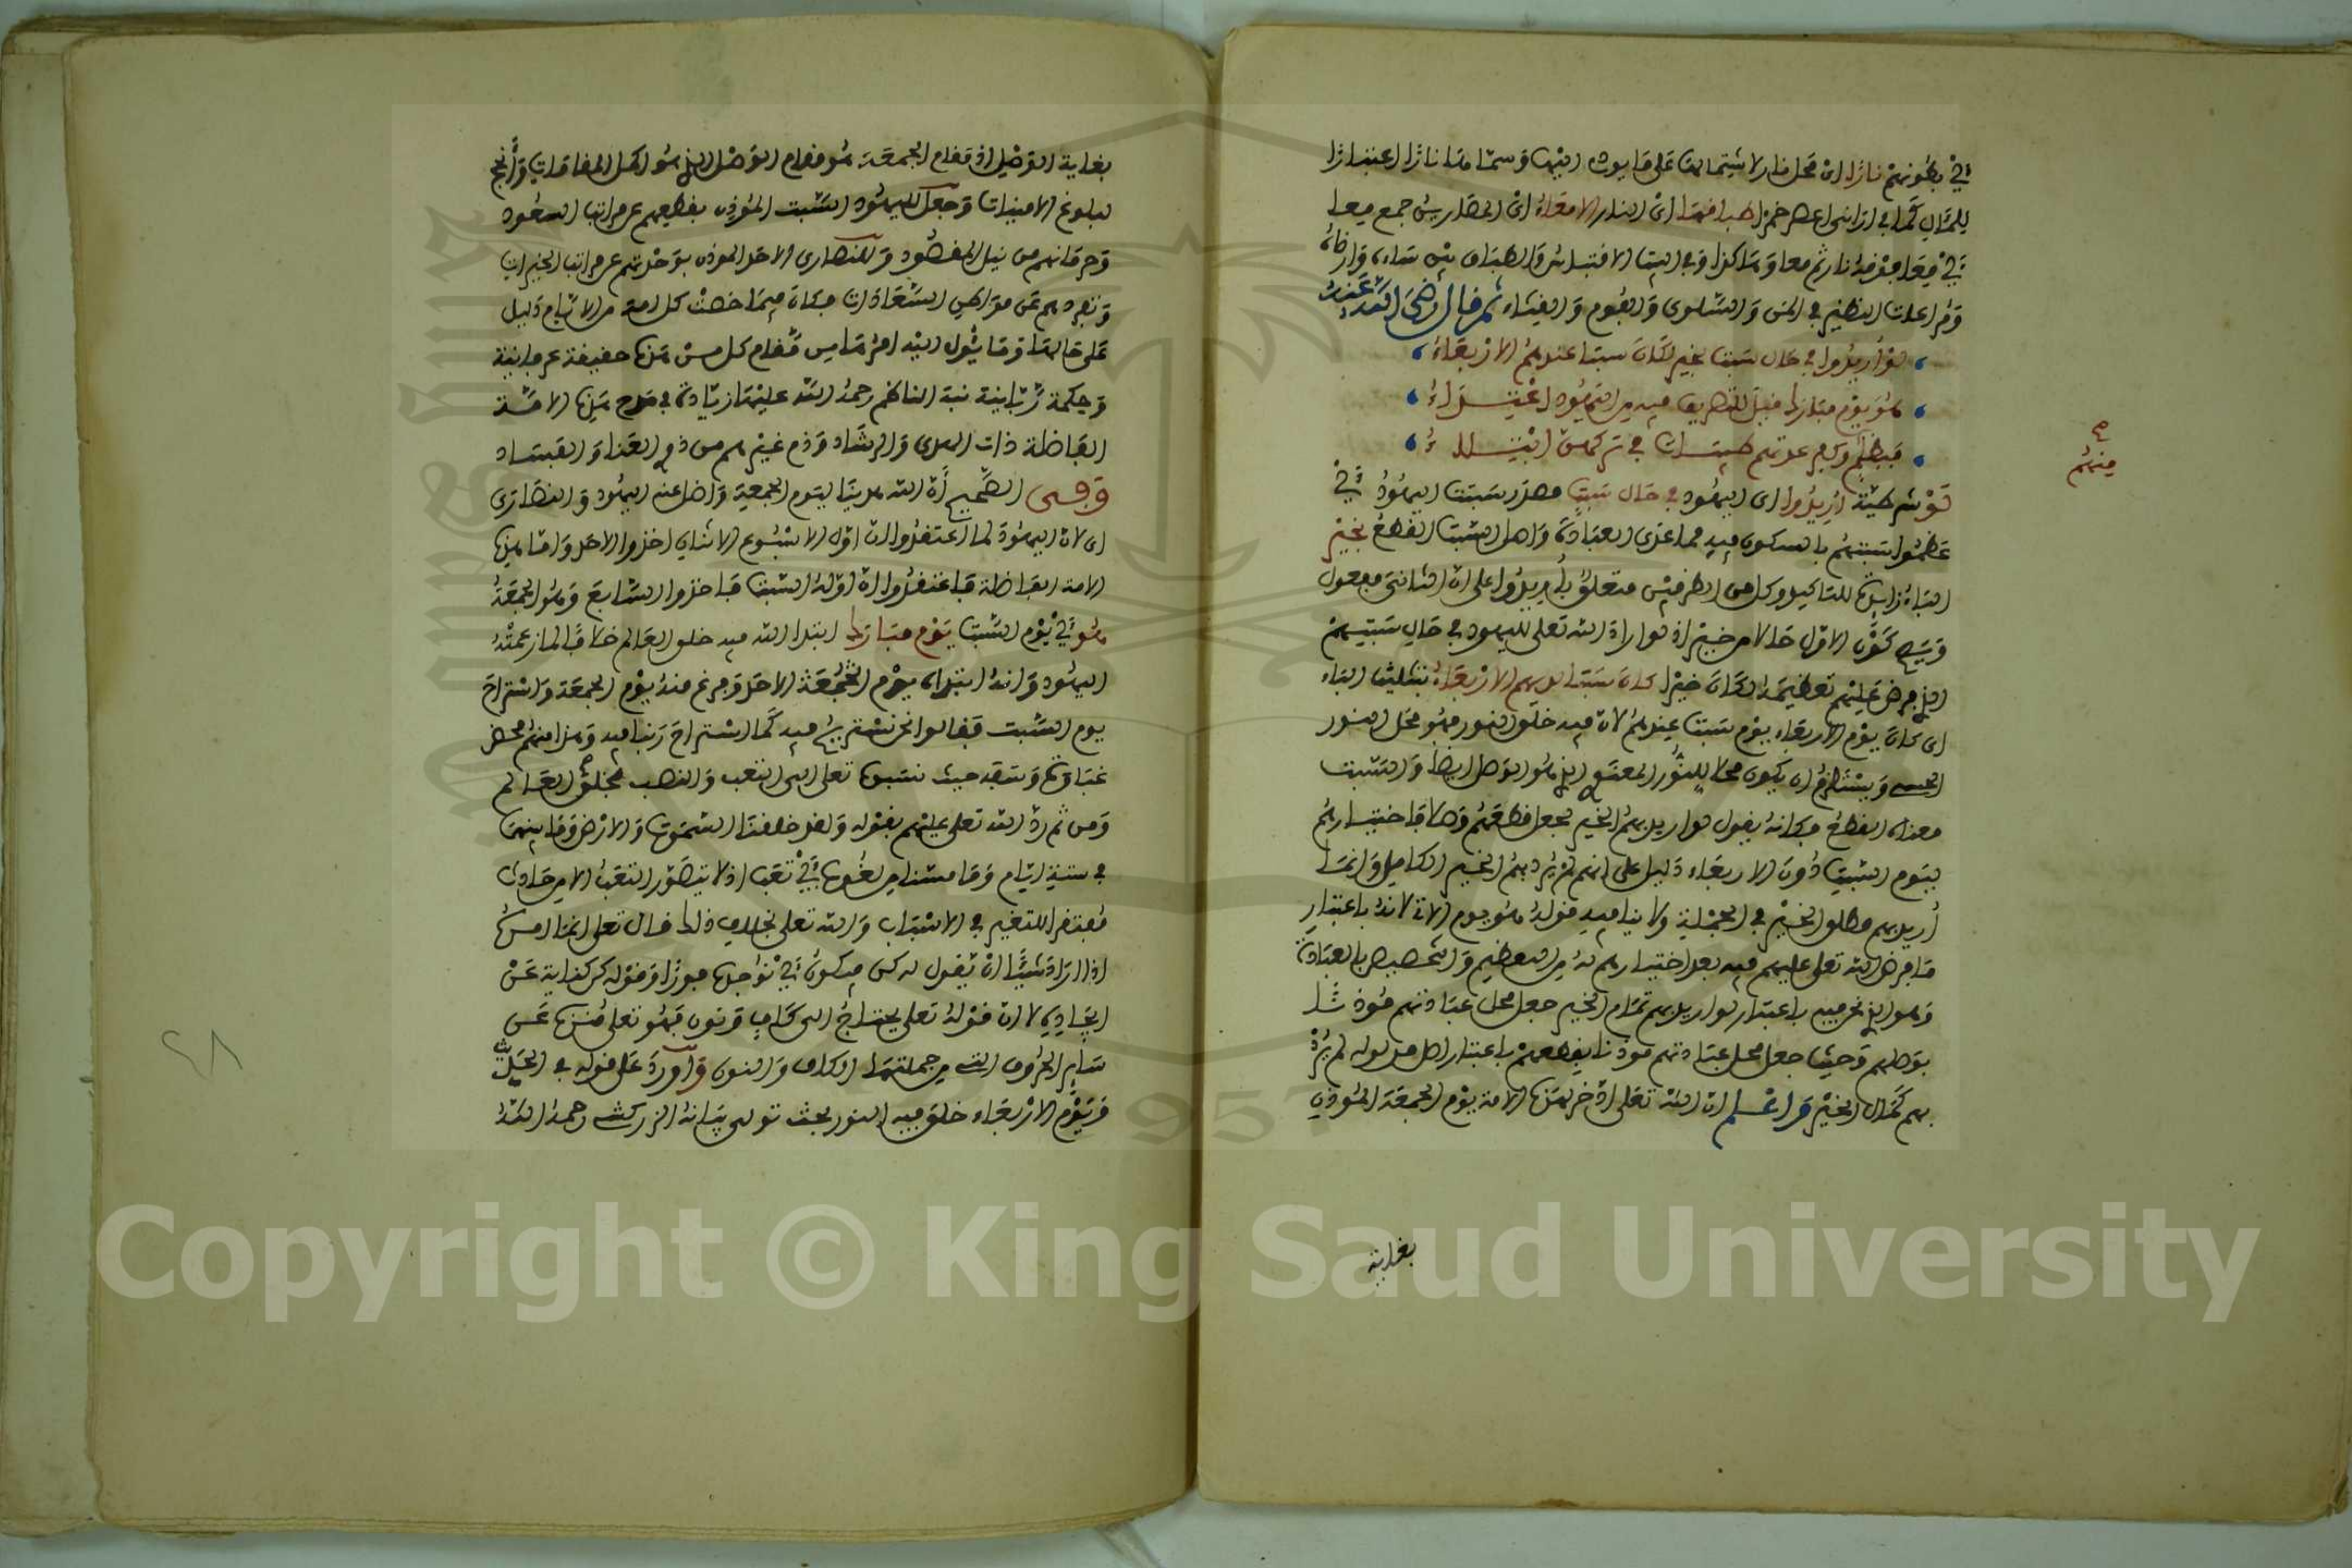 في بطونهم نارا اي محل نار لاشتمالها على ما يوءل اليها وسمتا ملنا نارا اعتبارا
للمئال كما في اراني اعصر خمرا طباقها اي النار الامعاء اي المصارين جمع معا
في معا موفدة نار ثم معا وهاكذا وفي البيت الاقتباس والطباق بين
ومراعات النظير في المن والسلوى والفوم والقثاء ثم قال رضي الله عنه
لو أريدوا في حال سبت بخير لكان سبتا عندهم الاربعاء
هو يوم مبارك قيل للتصريف فيه من اليهود اعتداء
فبظلم وكفر عدتهم طيبات في تركهن ابتلاء
منهم
لو شرطية اريدوا اي اليهود في حال سبت مصدر سبتت اليهود اي
عظموا سبتهم بالسكون فيه عما عدى العبادة واصل السبت القطع بخير
الباء زايدة للتاكيد وكل من الظرفين متعلق بأريدوا على ان الثاني مفعول
كون الاول حالا من خير اذ لو اراد الله تعلى لليهود في حال سبتهم
الذي فرض عليهم تعظيمه لكان خيرا كان سبتا لديهم الاربعاء بتثليث الباء
اي كان يوم الاربعاء يوم سبت عندهم لان فيه خلق النور فهو محل النور
الحسي ويستلزم ان يكون محلا للنور المعنوي الذي هو الوصل ايضا والسبت
معناه القطع فكانه يقول لو اريد بهم الخير لجعل قطعهم وصلا فاختيارهم
ليوم السبت دون الاربعاء دليل على انهم لم يرد بهم الخير الكامل وانما
أريد بهم مطلق الخير في الجملة ولا ينافيه قوله هو يوم الاتي لانه باعتبار
ما فرض الله تعلى عليهم فيه بعد اختيارهم له من التعظيم والتخصيص بالعبادة
وهو الذي نحن فيه باعتبار لو اريد بهم تمام الخير جعل محل عبادتهم موذنا
بوصلهم وحيث جعل محل عبادتهم موذنا بقطعهم باعتبار اصل مدلوله لم يرد
بهم كمال الخير واعلم ان الله تعلى ادخر لهذه الامة يوم الجمعة الموذن
بغاية
بغاية الوصل اذ مقام الجمعة هو مقام الوصل الذي هو اكمل المقامات وأنجح
لبلوغ الامنيات وجعل لليهود السبت الموذن بقطعهم عن مراتب السعود
وحرمانهم من نيل المقصود وللنصارى الاحد الموذن بوحدتهم عن مراتب الخيرات
وتفردهم عن مواطن السعادات فكان فيما خصت كل امة من الايام دليل
على حالها وما يئول اليه امرها من مقام كل من هذه حقيقة عرفانية
وحكمة ربانية نبه الناظم رحمه الله عليها زيادة في مدح هذه الامة
الفاضلة ذات الهدى والرشاد وذم غيرهم من ذوي العناد والفساد
وفي الصحيح أن الله هدينا ليوم الجمعة واضل عنه اليهود والنصارى
اي لان اليهود لما اعتقدوا ان اول الاسبوع الاثنان اخذوا الاحد واما هذه
الامة الفاضلة فاعتقدوا ان اوله السبت فاخذوا السابع وهو الجمعة
هو أي يوم السبت يوم مبارك ابتدا الله فيه خلق العالم خلافا لما زعمته
اليهود وانه ابتداه يوم الاحد وفرغ منه يوم الجمعة واستراح
يوم السبت فقالوا نحن نستريح فيه كما استراح ربنا فيه وهذا منهم محض
غباوة وسفه حيث نسبوه تعلى الى التعب والنصب بخلق العالم
ومن ثم رد الله تعلى عليهم بقوله ولقد خلقنا السموت والارض وما بينهما
في ستة ايام وما مسنا من لغوب أي تعب اذ لا يتصور التعب الا من حادث
مفتقر للتغير في الاسباب والله تعلى بخلاف ذلك قال تعلى انما امره
اذا اراد شيئا ان يقول له كن فيكون أي نوجده فورا وقوله كن كناية عن
ايجاده لا ان قوله تعلى يحتاج الى كاف ونون فهو تعلى منزه عن
ساير الحروف التي من جملتها الكاف والنون وأورد على قوله في الحديث
ويوم الاربعاء خلق فيه النور بحث تولى بيانه الزركشي رحمه الله
٤٨
Copyright © King Saud University
1957